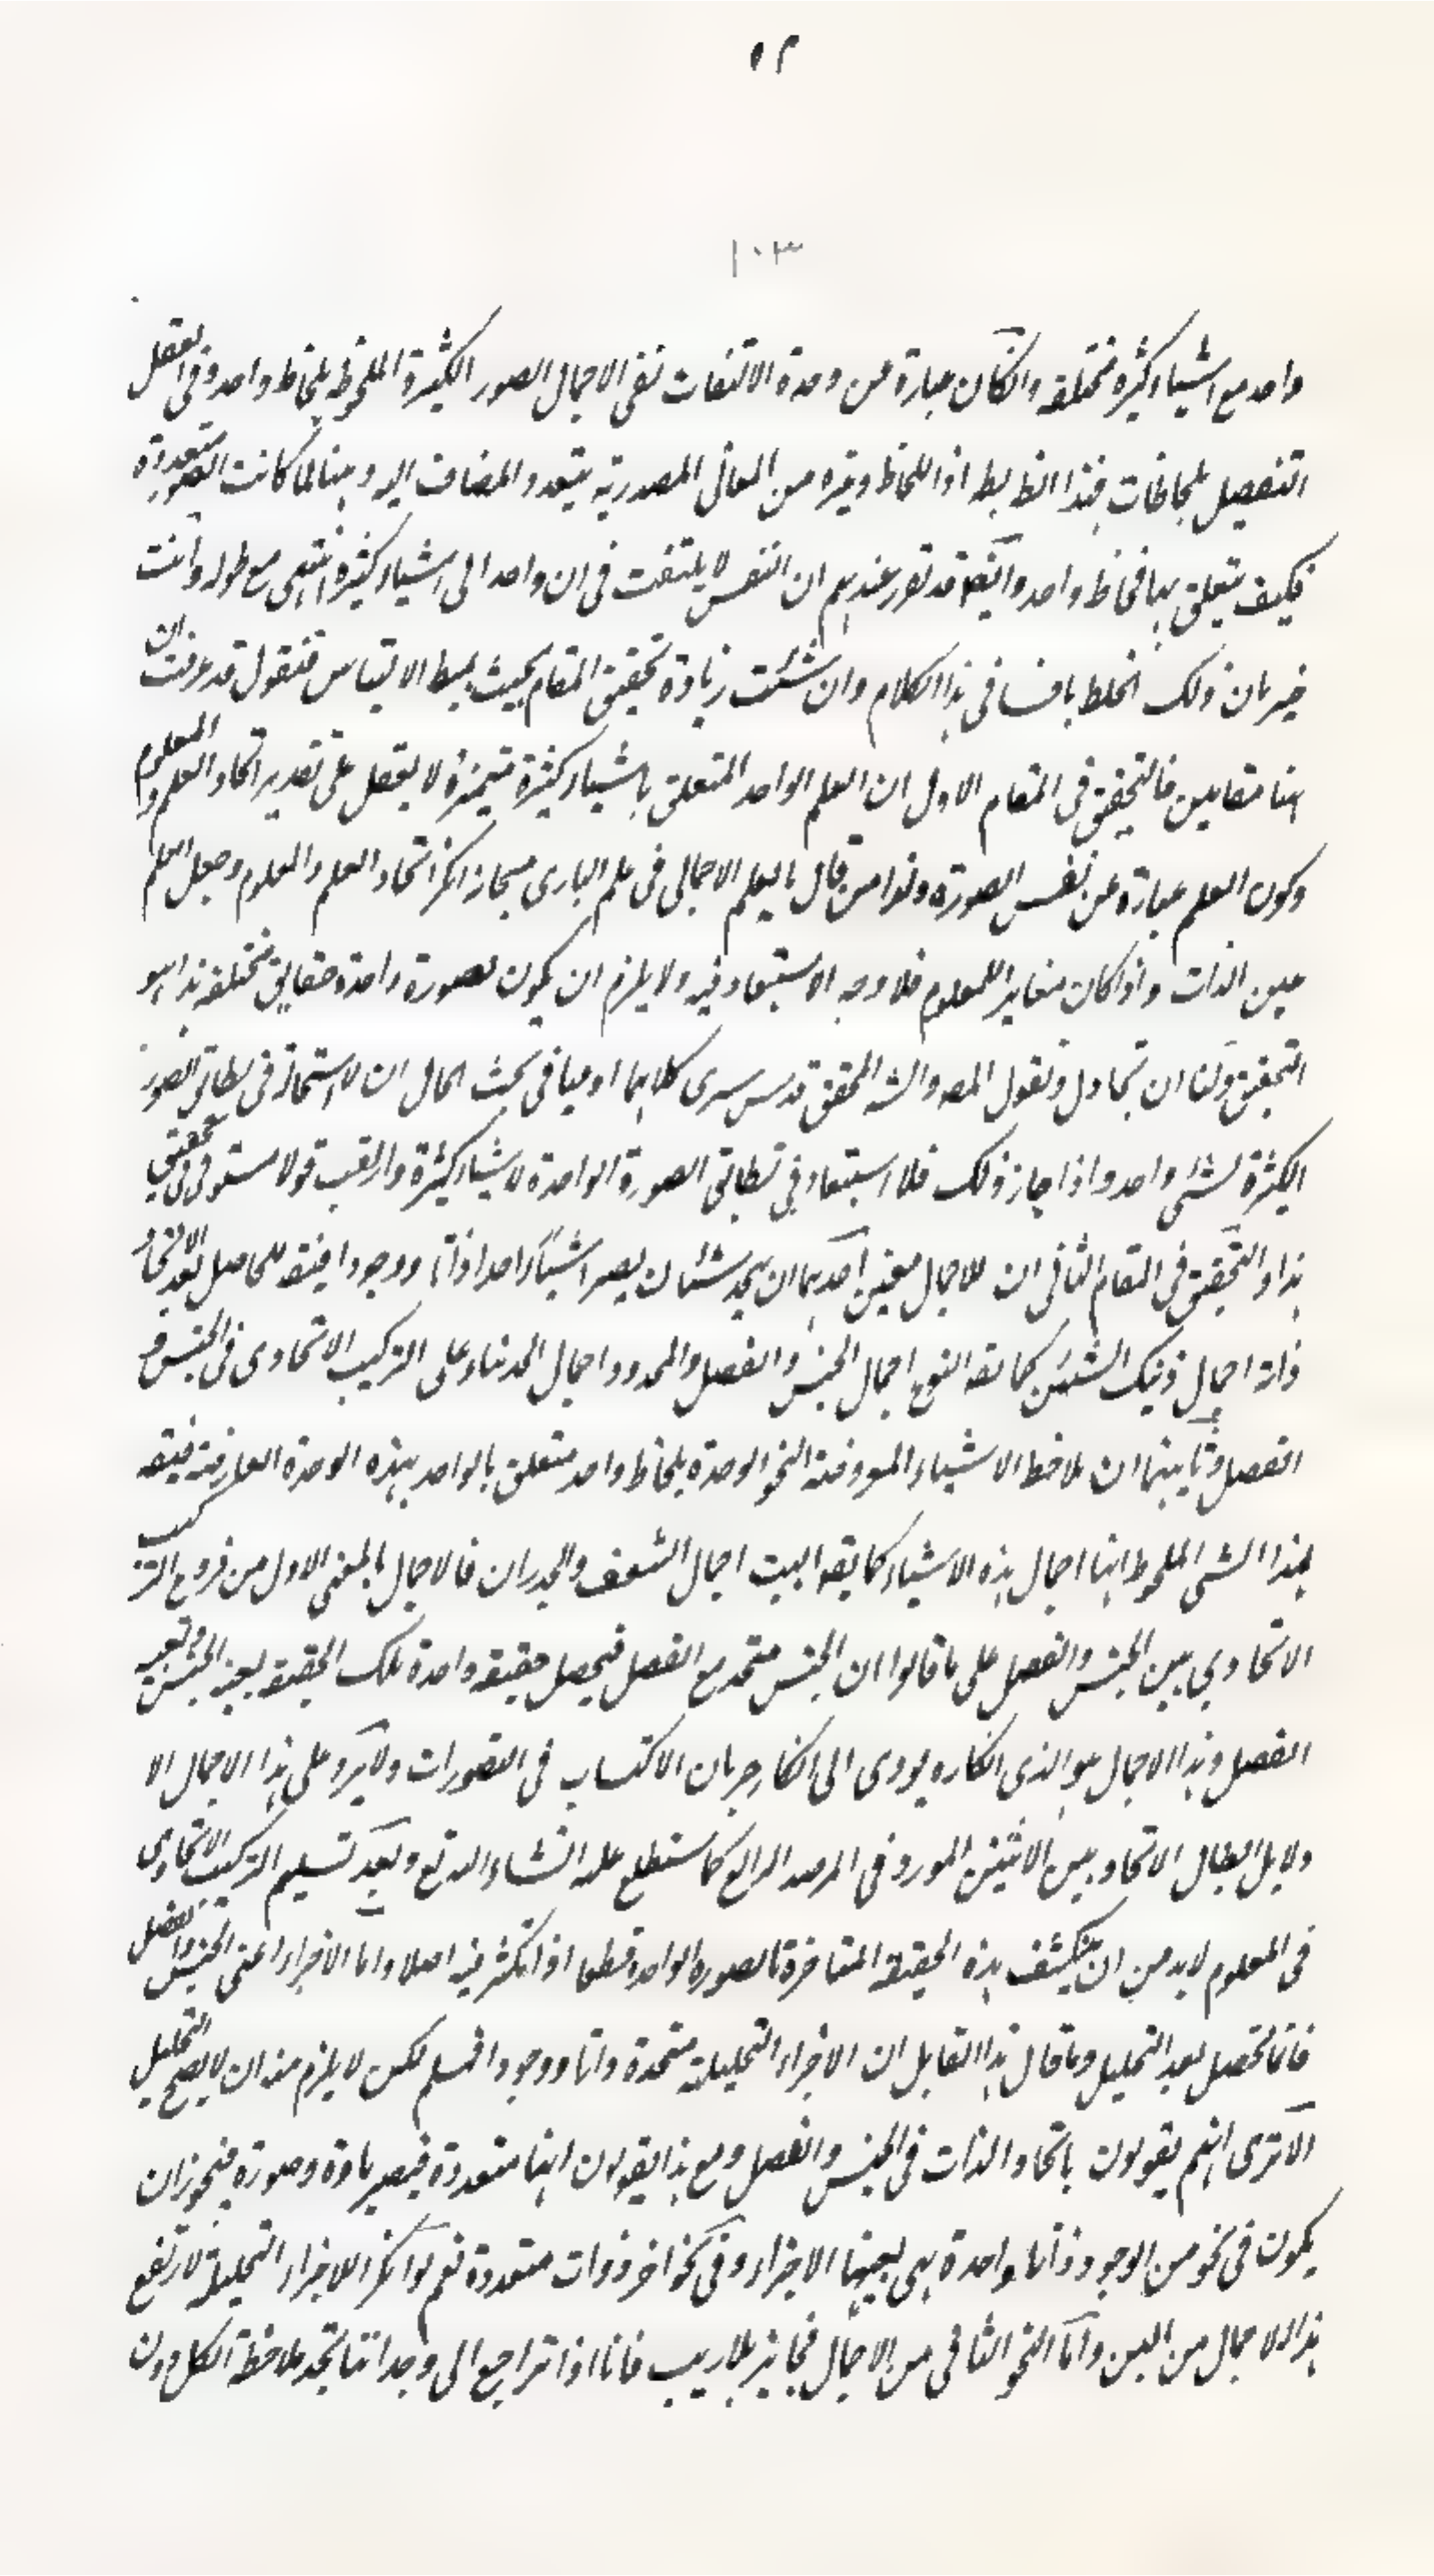 ٥٢
١٠٣
واحد مع اشياء كثيرة مختلفة وان كان عبارة من وحدة الالتفات نفى الاجمال الصور الكثيرة الملحوظة بلحاظ واحد وفى العقل
التفصيل بلحاظات فهذا ايضا بط اذ اللحاظ وغيره من المعانى المصدرية يتعدد المضاف اليه وههنا لما كانت الصور متعددة
فكيف يتعلق بها لحاظ واحد وايضا قد تقرر عندهم ان النفس لا يلتفت فى ان واحد الى اشياء كثيرة انتهى مع طوله وانت
خبير بان ذلك الخلط باق فى هذا الكلام وان شئت زيادة تحقيق المقام بحيث يميط الالتباس فنقول قد عرفت ان
ههنا مقامين فالتحقيق فى المقام الاول ان العلم الواحد المتعلق باشياء كثيرة متميزة لا يعقل على تقدير اتحاد العلم والمعلوم
وكون العلم عبارة عن نفس الصورة ولذا من قال بالعلم الاجمالى فى علم البارى سبحانه انكر اتحاد العلم والمعلوم وجعل العلم
عين الذات واذا كان مغايرا للمعلوم فلا وجه الاستبعاد فيه ولا يلزم ان يكون لصورة واحدة حقايق مختلفة هذا هو
التحقيق ولنا ان نجادل ونقول المصه والشه المحقق قدس سرى كلاهما اوميا فى بحث الحال ان لا استحالة فى تطابق الصور
الكثيرة لشئ واحد واذا جاز ذلك فلا استبعاد فى تطابق الصورة الواحدة لاشياء كثيرة وارتقب قولا مستوفى فى تحقيق
هذا والتحقيق فى المقام الثانى ان للاجمال معنيين احدهما ان يتحد شئيان يصير اشيئا واحدا ذاتا ووجودا فيقه للحاصل بعد الاتحاد
ذاته اجمال ذينك الشيئين كما يقه النوع اجمال الجنس والفصل والمحدود اجمال الحد بناء على التركيب الاتحادى فى الجنس و
الفصل وثانيهما ان يلاحظ الاشياء المعروضة النحو الوحدة بلحاظ واحد متعلق بالواحد بهذه الوحدة العارضة فيقه
لهذا الشئ الملحوظ انها اجمال هذه الاشياء كما يقه البيت اجمال السقف والجدران فالاجمال بالمعنى الاول من فروع التركيب
الاتحادي بين الجنس والفصل على ما قالوا ان الجنس متحد مع الفصل فيحصل حقيقة واحدة تلك الحقيقة بعينه الجنس وبعينه
الفصل وهذا الاجمال هو الذى انكاره يودى الى انكار جريان الاكتساب فى التصورات ولا يرد على هذا الاجمال الا
دلايل ابطال الاتحاد بين الاثنين المورد فى المرصد الرابع كما ستطلع عليه انشاء الله تع وبعد تسليم التركيب الاتحادى
فى المعلوم لابد من ان ينكشف هذه الحقيقة المتاخرة بالصورة الواحدة قطعا اذ لا تكثر فيه اصلا واما الاجزاء اعنى الجنس والفصل
فانما تحصل بعد التحليل وما قال هذا القايل ان الاجزاء التحليلية متحدة ذاتا ووجودا فمسلم لكن لا يلزم منه ان لا يصح التحليل
الا ترى انهم يقولون باتحاد الذات فى الجنس والفصل ومع هذا يقولون انها متعددة فيصير مادة وصورة فيجوز ان
يكون فى نحو من الوجود ذاتا واحدة هى بعينها الاجزاء وفى نحو اخر ذوات متعددة نعم لو انكر الاجزاء التحليلية لارتفع
هذا الاجمال من البين واما النحو الثانى من الاجمال فجايز بلا ريب فانا اذا نراجع الى وجداننا نجد ملاحظة الكل دون